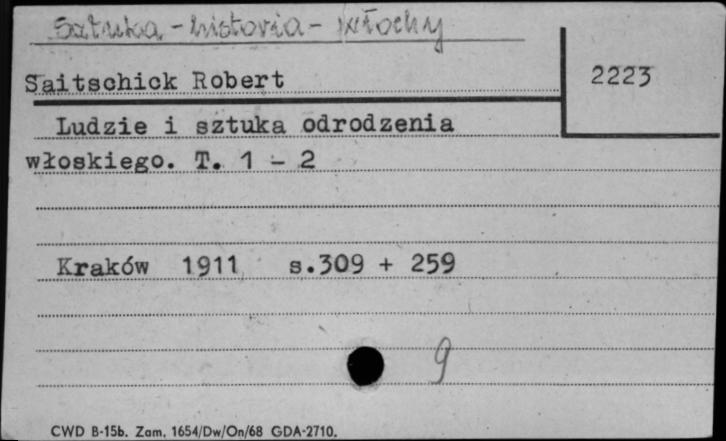 Sztuka - historia - Włochy
Saitschick Robert
2223
Ludzie i sztuka odrodzenia
włoskiego. T. 1 - 2
Kraków 1911 s.309 + 259
9
CWD B-15b. Zam. 1654/Dw/On/68 GDA-2710.